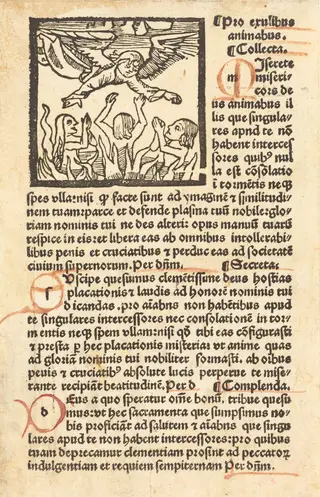 ¶Pro exulibus
animabus.
¶Collecta.
MIserete
miseri
cors de
us animabus il
lis que singula
res apud te nō
habent interces
sores quibꝰ nul
la est cōsolatio
ī tormētis neqꝫ
spes vlla:nisi ꝙ facte sunt ad ymaginē ⁊ similitudi
nem tuam:parce et defende plasma tuū nobile:glo
riam nominis tui ne des alteri: opus manuū tuarū
respice in eis:et libera eas ab omnibus intollerabi
libus penis et cruciatibus ⁊ perduc eas ad societatē
ciuium supernorum. Per dn̄m. ¶Secreta.
sUscipe quesumus clementissime deus hostias
placationis ⁊ laudis ad honorē nominis tui
dicandas. pro aīabus non habētibus apud
te singulares intercessores nec consolationē in tor
mentis neqꝫ spem vllam:nisi qđ tibi eas cōfigurasti
⁊ presta ꝑ hec placationis misteria: vt anime quas
ad gloriā nominis tui nobiliter formasti. ab oībus
penis ⁊ cruciatibꝰ absolute lucis perpetue te mise
rante recipiāt beatitudinē. Per d ¶Complenda.
dEus a quo speratur oīne bonū. tribue quesu
mus:vt hec sacramenta que sumpsimus no
bis proficiāt ad salutem ⁊ aīabus que singu
lares apud te non habent intercessores:pro quibus
tuam deprecamur clementiam prosint ad peccatorꝫ
indulgentiam et requiem sempiternam Per dn̄m.